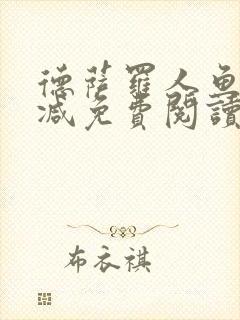 德薩羅人魚
減免費閱讀
布衣祺